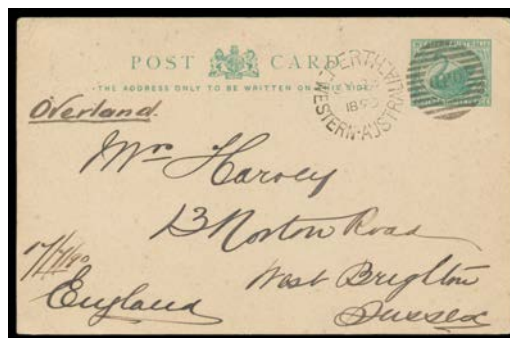 POST CARD
THE ADDRESS ONLY TO BE WRITTEN ON THIS SIDE
PERTH
WESTERN-AUSTRALIA
Overland.
Mrs Harvey
13 Norton Road
West Brighton
Sussex
England